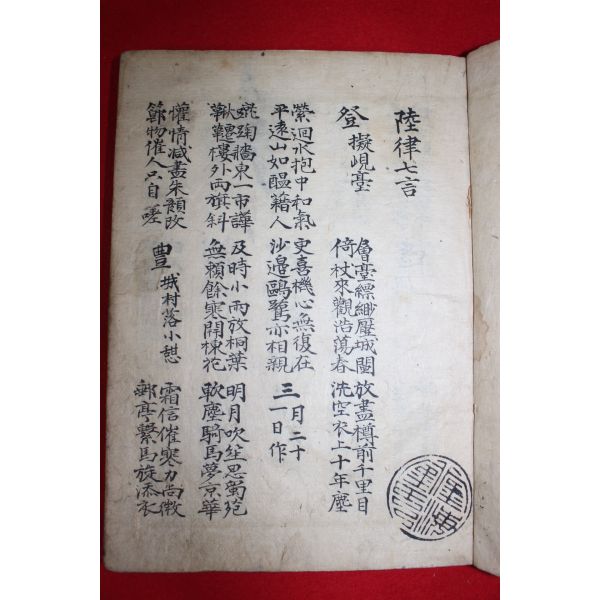 陸律七言
登擬峴臺
層臺縹緲壓城闉
倚杖來觀浩蕩春
放盡樽前千里目
洗空衣上十年塵
縈迴水抱中和氣
平遠山如醞藉人
更喜機心無復在
沙邊鷗鷺亦相親
三月二十
一日作
蹴踘牆東一市譁
鞦韆樓外兩旗斜
及時小雨放桐葉
無賴餘寒開楝花
明月吹笙思蜀苑
軟塵騎馬夢京華
懽情減盡朱顏改
節物催人只自嗟
豊城村落小憇
霜信催寒力尚微
郵亭繫馬旋添衣